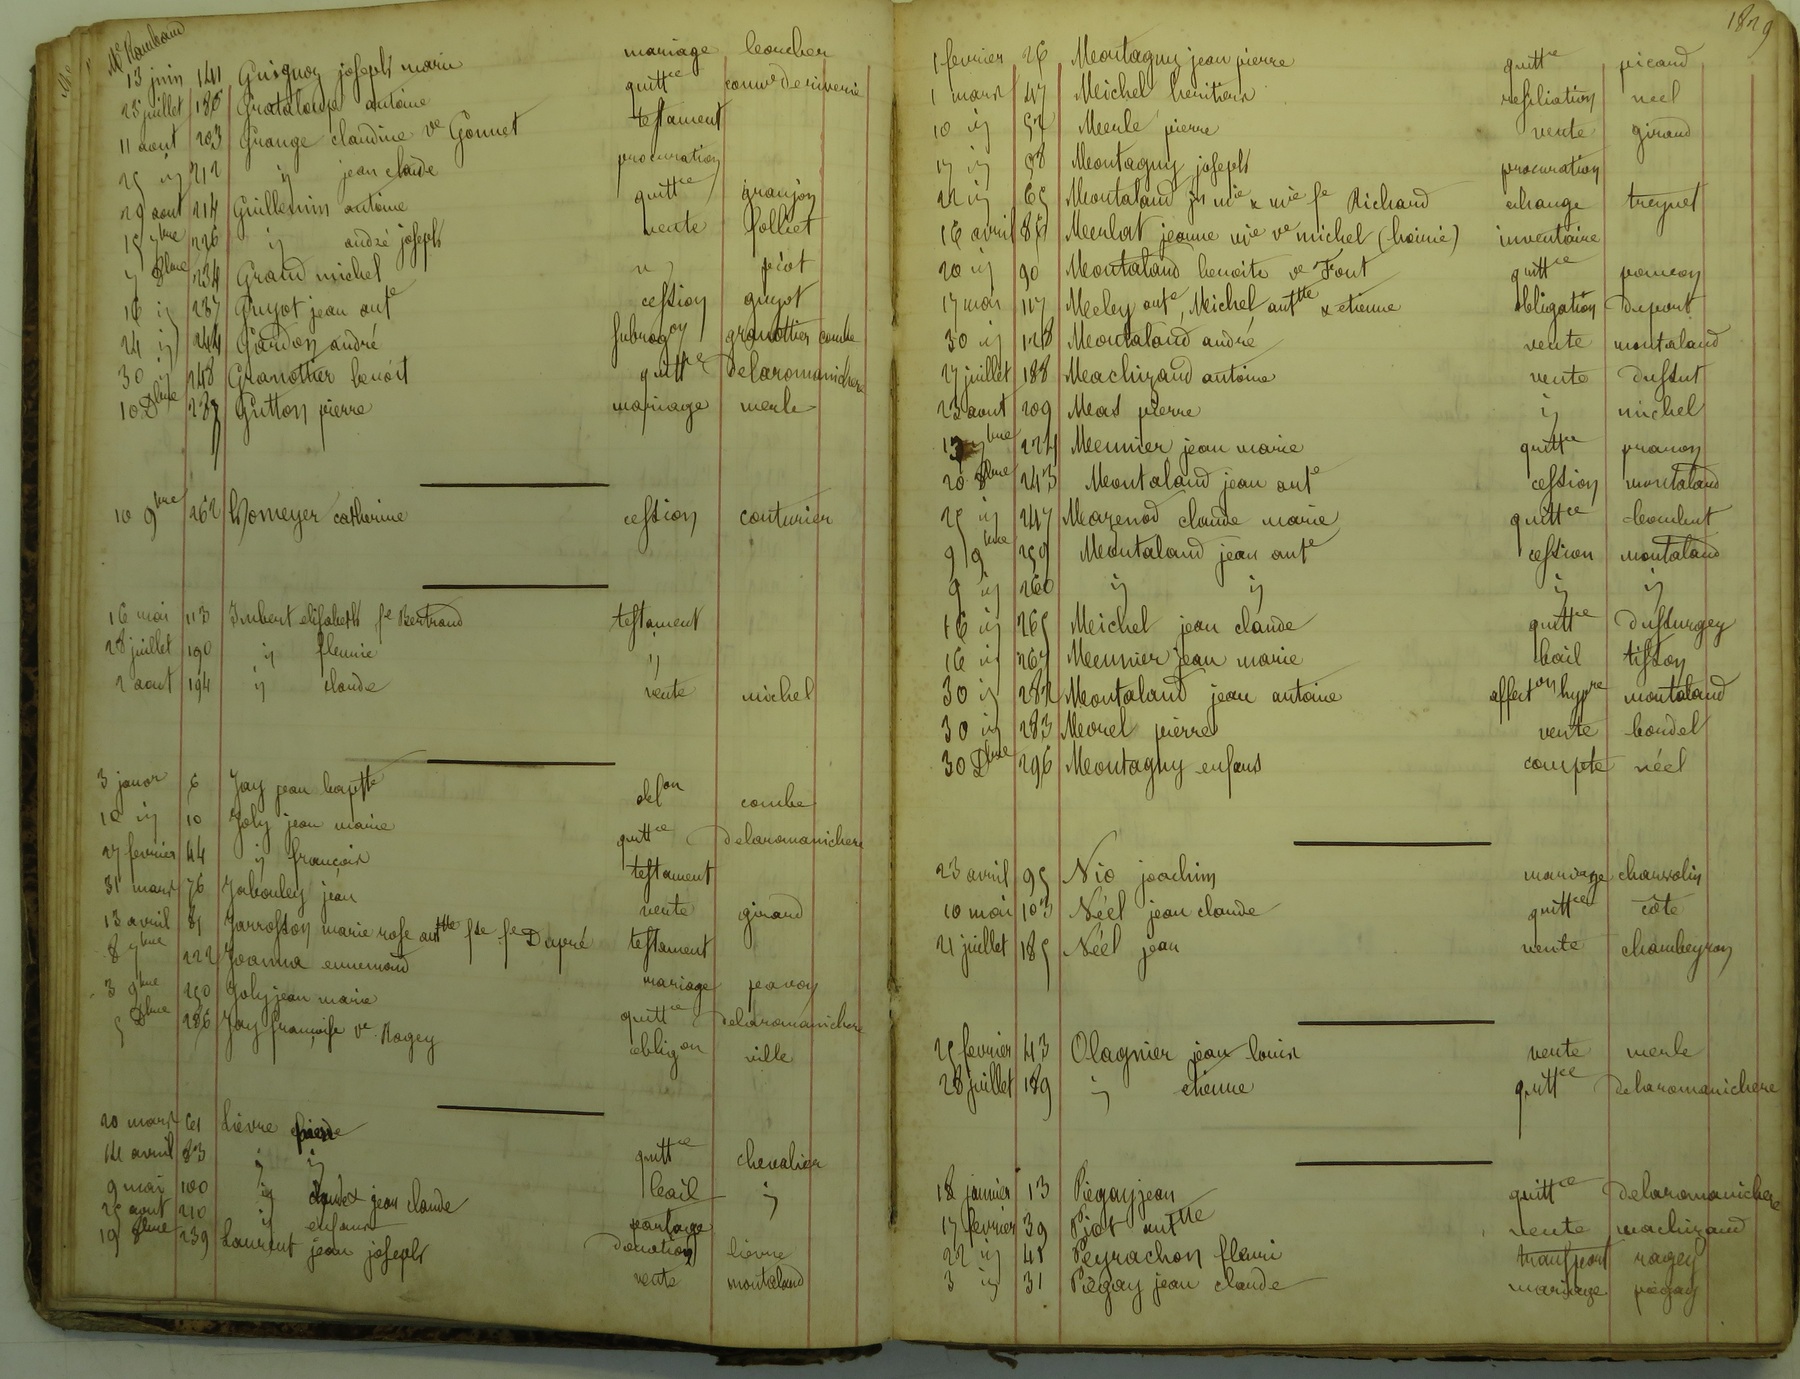 Me Rambaud
13 juin 141 Guignoz joseph marie mariage boucher
25 juillet 186 Grataloup antoine quittce comu de riverie
11 aout 203 Grange claudine ve Gonnet testament
25 ij 212 ij jean claude procuration
29 aout 214 Guillermin antoine quittce granjon
15 7bre 226 ij andré joseph vente folliet
7 8bre 234 Grand michel ij picot
16 ij 237 Guyot jean ante cession guyot
24 ij 244 Gardon andré subrogon granottier combe
30 ij 248 Granottier benoit quittce delaromanichere
10 Dbre Gutton pierre mariage merle
10 9bre 262 homeyer catherine cession couturier
16 mai 113 Imbert elisabeth fe Bertrand testament
28 juillet 190 ij fleurie ij
2 aout 194 ij claude vente michel
3 janer 6 Jay jean baptte combe
10 ij 10 Joly jean marie quittce delaromanichere
27 fevrier 44 ij françois testament
31 mars 76 Jabouley jean vente girard
13 avril 81 Jarrosson marie rose anttte fe Dupré testament
8 7bre 222 Joanna ennemond mariage
3 9bre 250 Joly jean marie quittce delaromanichere
5 Dbre 286 Jay françoise ve Ragey obligon ville
20 mars 61 Lièvre quittce chevalier
14 avril 83 ij ij bail ij
9 mai 100 ij jean claude partage
26 aout 210 ij enfans donation lievre
19 8bre 239 Laurent jean joseph vente montaland
1829
1 fevrier 26 Montagny jean pierre quittce picard
1 mars 47 Michel heritiers resiliation neel
10 ij 52 Merle pierre vente girard
17 ij 58 Montagny joseph procuration
22 ij 65 Montaland jn mie & mie fe Richard echange treynet
16 avril 86 Merlat jeanne mie ve michel (hoirie) inventaire
20 ij 90 Montaland benoite ve Font quittce poncon
17 mai 117 Meley ante, Michel anttte & etienne obligation dupont
30 ij 128 Montaland andré vente montaland
27 juillet 188 Machizaud antoine vente dussut
23 aout 209 Mas pierre ij michel
13 7bre 224 Meunier jean marie quittce
20 8bre 243 Montaland jean ante cession montaland
25 ij 247 Mazenod claude marie quittce
9 9bre 259 Montaland jean ante cession montaland
9 ij 260 ij ij ij ij
16 ij 265 Michel jean claude quittce dussurgey
16 ij 267 Meunier jean marie bail tisson
30 ij 282 Montaland jean antoine affecton hypre montaland
30 ij 283 Morel pierre vente bordel
30 Dbre 296 Montagny enfans compte néel
23 avril 95 Nio joachim mariage charvolin
10 mai 103 Néel jean claude quittce côte
21 juillet 185 Néel jean vente chambeyron
25 fevrier 43 Olagnier jean louis vente merle
28 juillet 189 ij etienne quittce delaromanichere
18 janvier 13 Piegay jean quittce delaromanichere
17 fevrier 39 Piot anttte vente machizaud
22 ij 41 Peyrachon fleuri transport ragey
3 ij 31 Piegay jean claude mariage piegay